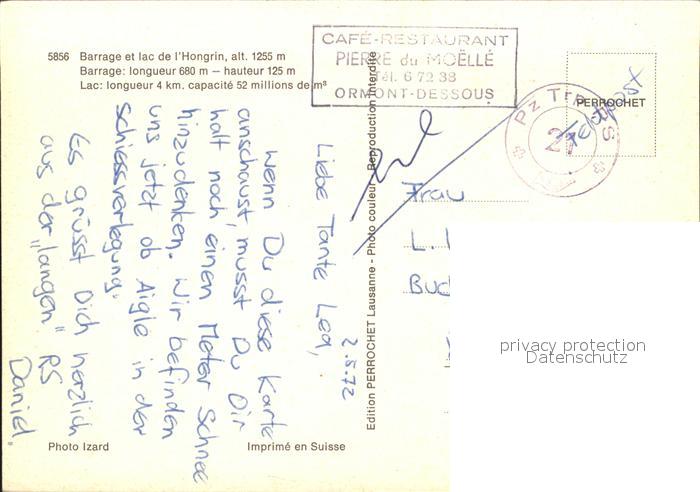 5856 Barrage et lac de l'Hongrin, alt. 1255 m
Barrage: longueur 680 m — hauteur 125 m
Lac: longueur 4 km. capacité 52 millions de m³
CAFÉ-RESTAURANT
PIERRE du MOËLLÉ
Tél. 6 72 38
ORMONT-DESSOUS
PERROCHET
Feldpost
Pz Trp S
2.5.72
Liebe Tante Lea,
Wenn Du diese Karte
anschaust, musst Du Dir
halt noch einen Meter Schnee
hinzudenken. Wir befinden
uns jetzt ob Aigle in der
Schiessverlegung.
Es grüsst Dich herzlich
aus der "langen" RS
Daniel.
Frau
L.
Buc
Edition PERROCHET Lausanne - Photo couleur - Reproduction interdite
privacy protection
Datenschutz
Photo Izard
Imprimé en Suisse